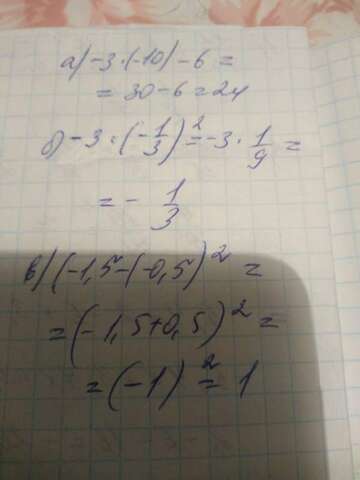 а) -3·(-10)-6=
=30-6=24
б) -3·(-1/3)²=-3·1/9=
=-1/3
в) (-1,5-(-0,5)²=
=(-1,5+0,5)²=
=(-1)²=1